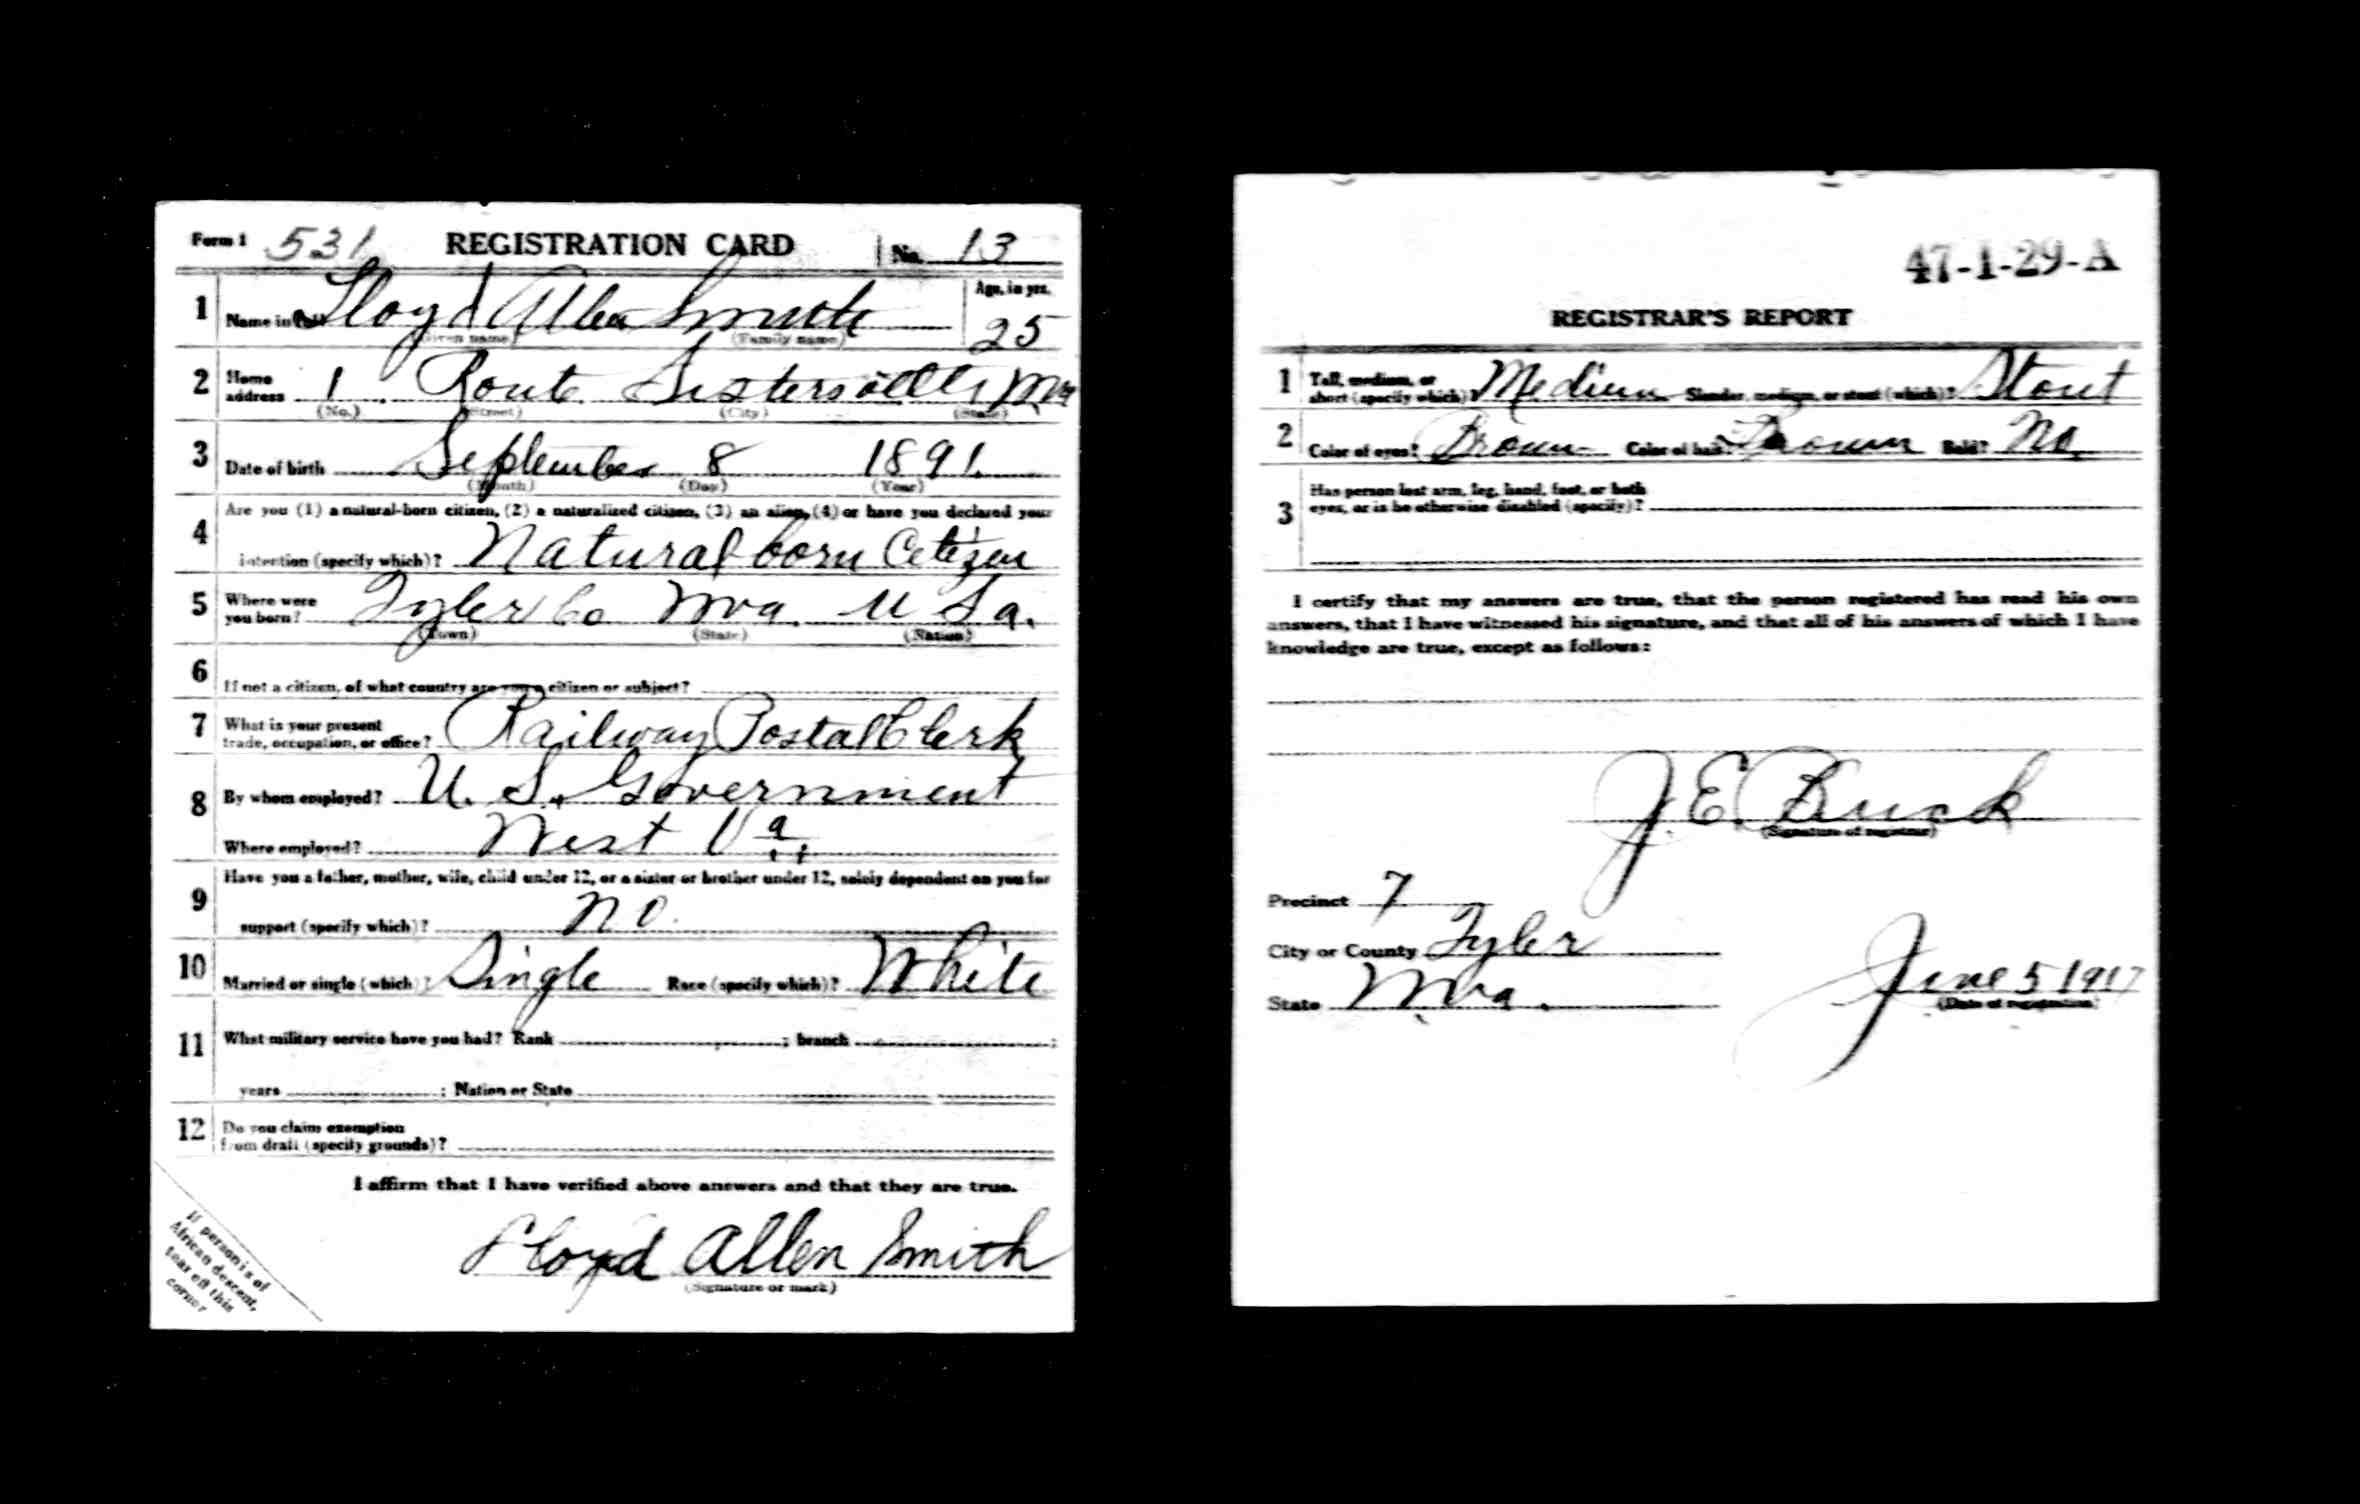 Form 1 531 REGISTRATION CARD No. 13
1 Name in full Lloyd Allen Smith Age, in yrs. 25
(Given name) (Family name)
2 Home address 1 Route Sistersville Wva
(No.) (Street) (City) (State)
3 Date of birth September 8 1891
(Month) (Day) (Year)
4 Are you (1) a natural-born citizen, (2) a naturalized citizen, (3) an alien, (4) or have you declared your
intention (specify which)? Natural born Citizen
5 Where were you born? Tyler Co Wva. U S a.
(Town) (State) (Nation)
6 If not a citizen, of what country are you a citizen or subject?
7 What is your present
trade, occupation, or office? Railway Postal Clerk
8 By whom employed? U. S. Government
Where employed? West Va.
9 Have you a father, mother, wife, child under 12, or a sister or brother under 12, solely dependent on you for
support (specify which)? No.
10 Married or single (which)? Single Race (specify which)? White
11 What military service have you had? Rank ; branch ;
years ; Nation or State
12 Do you claim exemption
from draft (specify grounds)?
I affirm that I have verified above answers and that they are true.
Lloyd Allen Smith
(Signature or mark)
If person is of
African descent,
tear off this
corner
47-1-29-A
REGISTRAR'S REPORT
1 Tall, medium, or
short (specify which)? Medium Slender, medium, or stout (which)? Stout
2 Color of eyes? Brown Color of hair? Brown Bald? No
3 Has person lost arm, leg, hand, foot, or both
eyes, or is he otherwise disabled (specify)?
I certify that my answers are true, that the person registered has read his own
answers, that I have witnessed his signature, and that all of his answers of which I have
knowledge are true, except as follows:
J. E. Buck
(Signature of registrar)
Precinct 7
City or County Tyler
State Wva.
June 5 1917
(Date of registration)